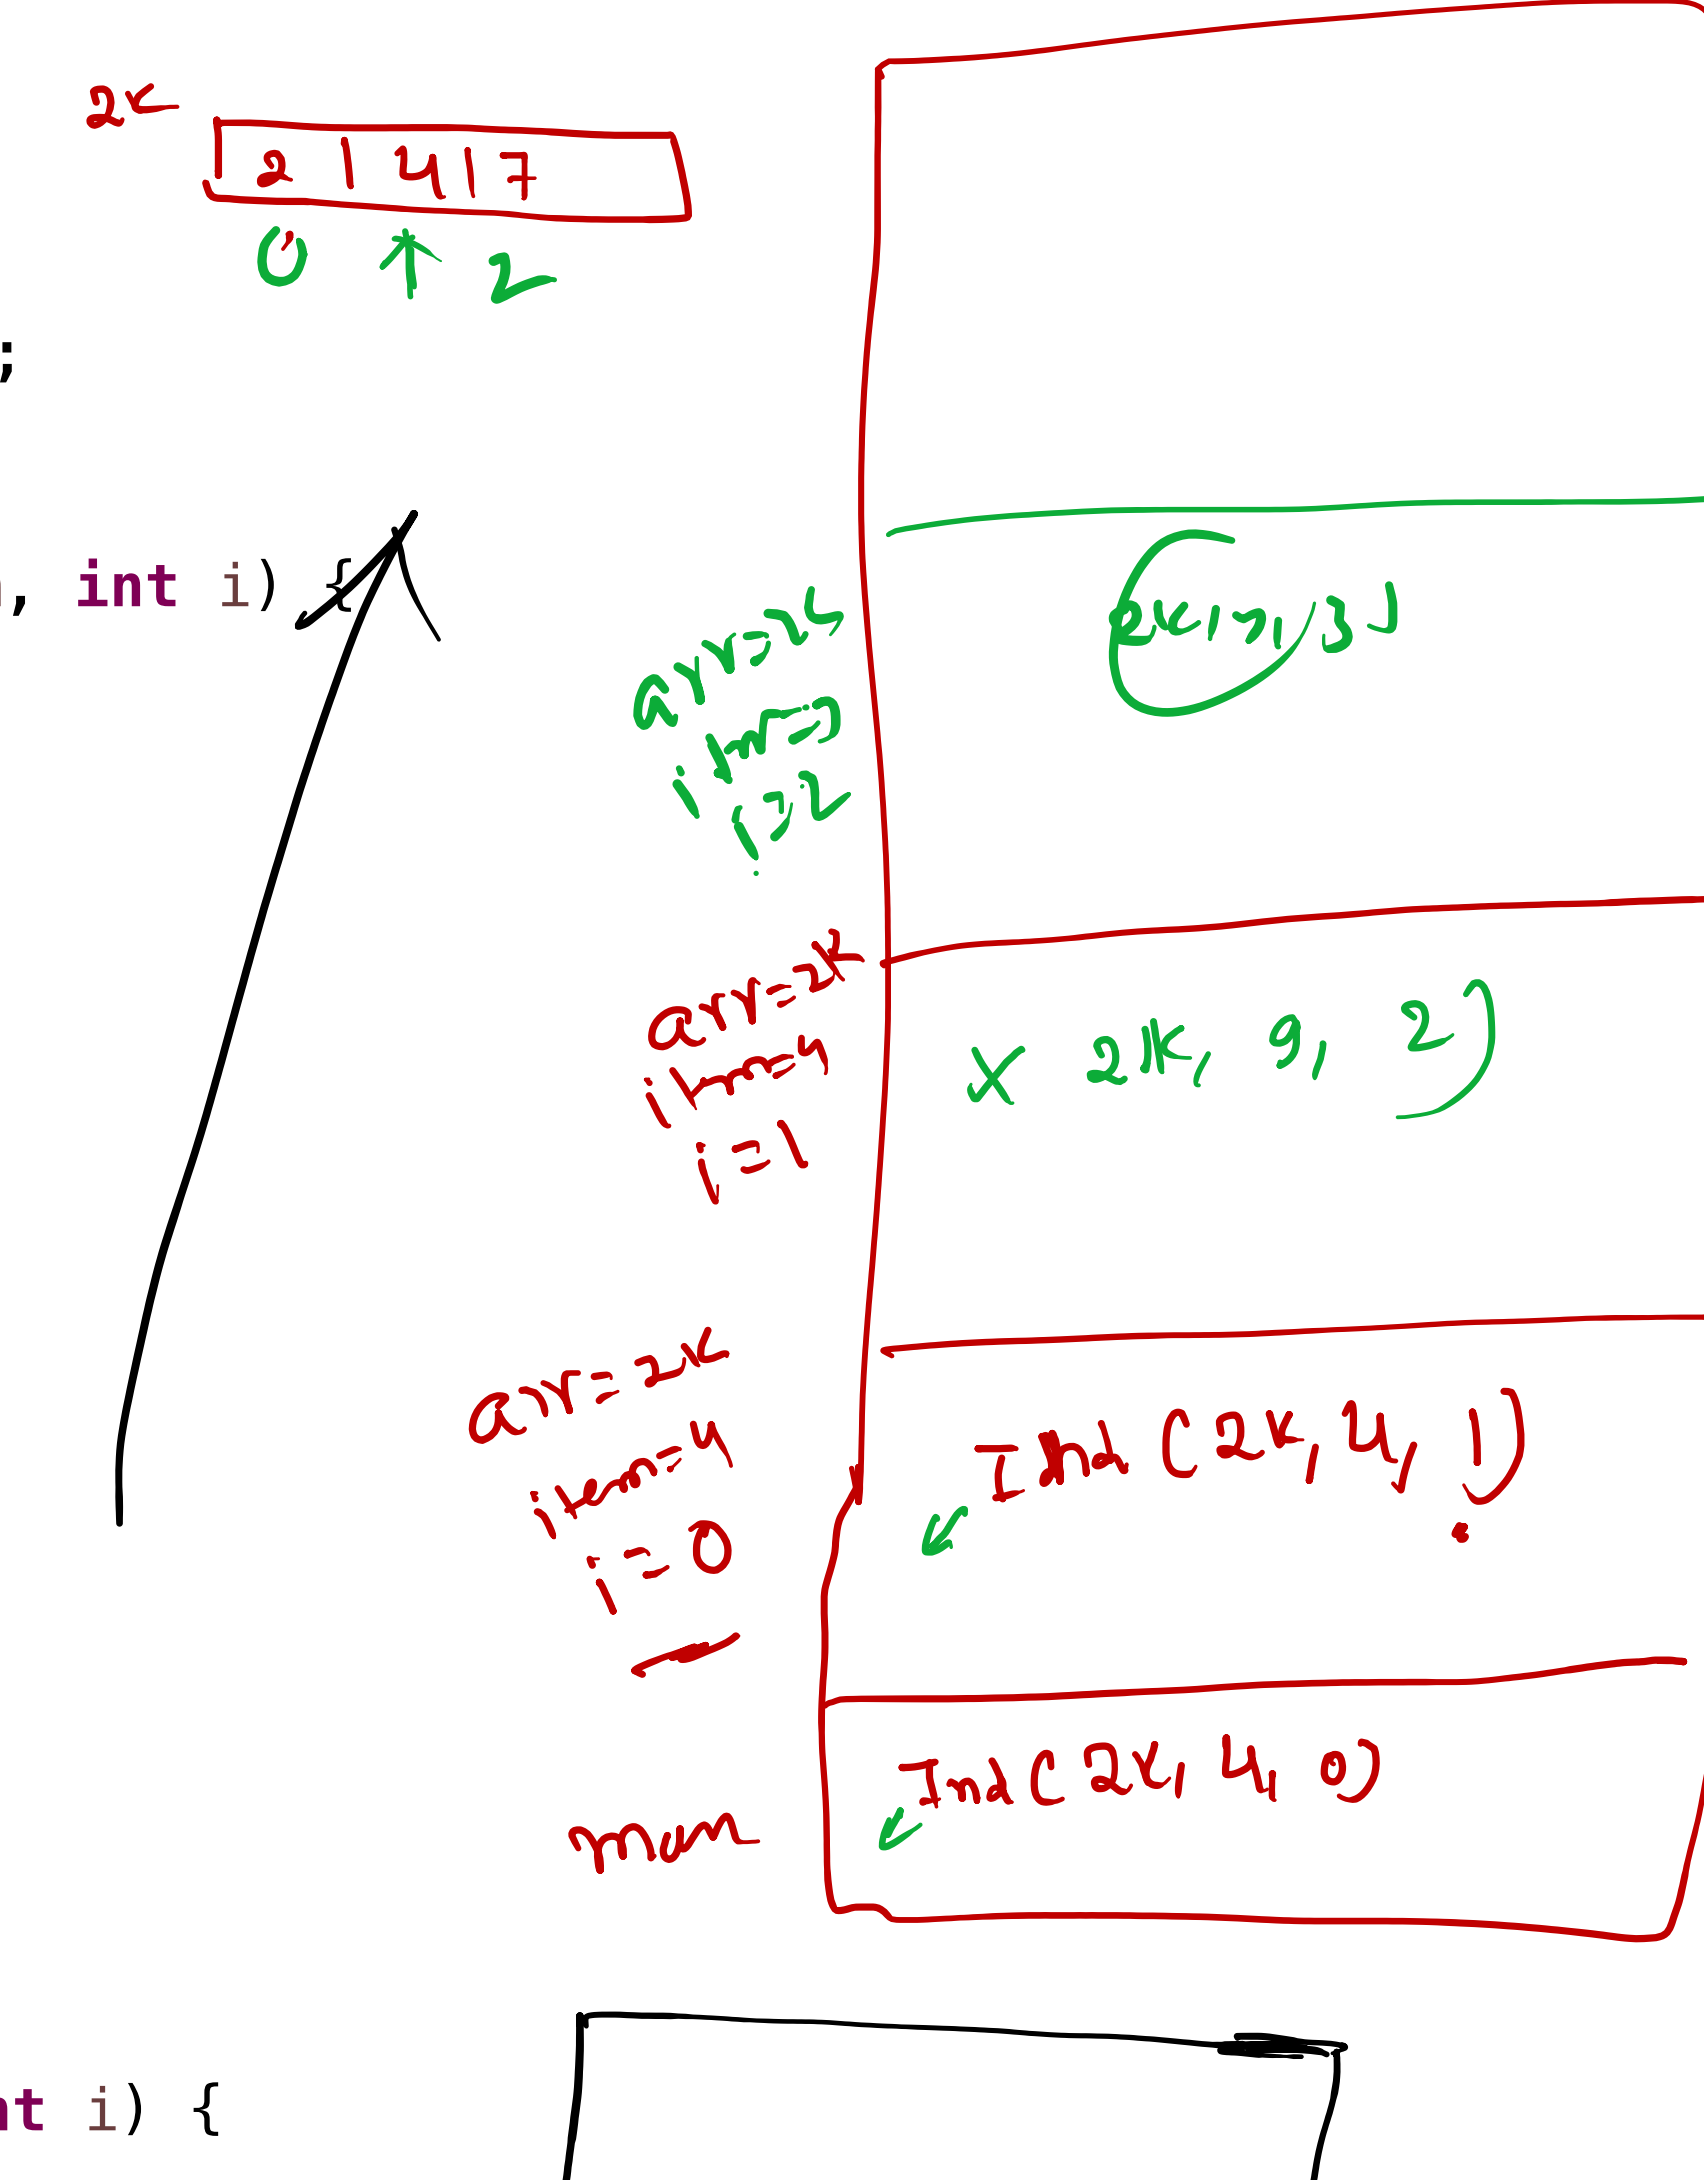 2k
2 | 4 | 7
0 2
;
, int i) {
arr=2k
i=2
2k, 7, 3)
arr=2k
item=4
i=1
x 2k, 9, 2)
arr=2k
item=4
i=0
Ind(2k, 4, 1)
Ind(2k, 4, 0)
main
nt i) {